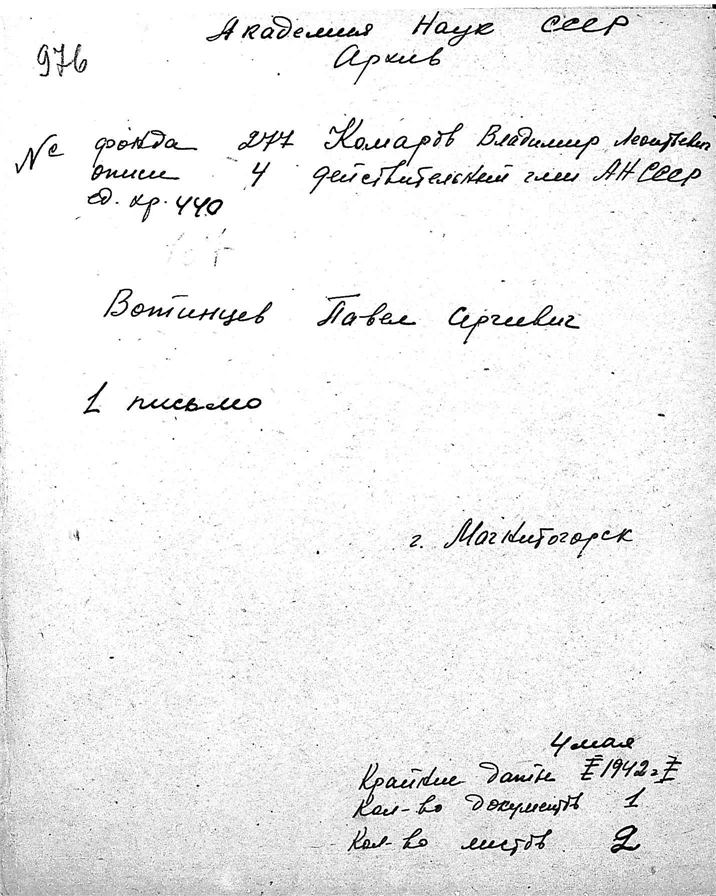 Академия Наук СССР
976
Архив
№ фонда 277 Комаров Владимир Леонтьевич
описи 4 действительный член АН СССР
ед. хр. 440
Вотинцев Павел Сергиевич
1 письмо
г. Магнитогорск
4 мая
Крайние даты 1942 г.
Кол-во документов 1
Кол-во листов 2